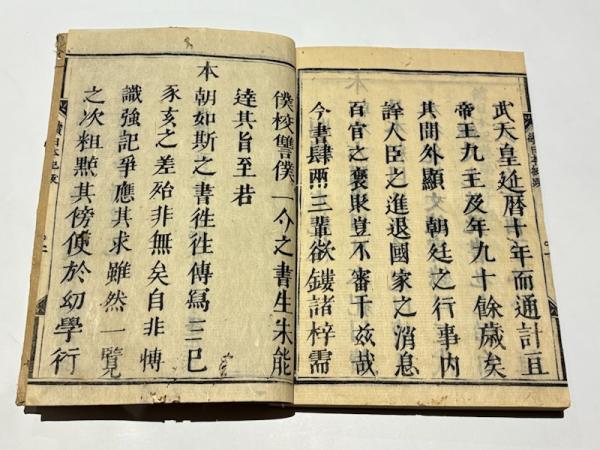 武天皇延暦十年而通計亘
帝王九主及年九十餘歳矣
其間外顯 朝廷之行事内
詳人臣之進退國家之消息
百官之褒貶豈不審于兹哉
今書肆兩三輩欲鏤諸梓需
僕校讐僕一介之書生未能
達其旨至若
本朝如斯之書徃徃傳寫三巳
豕亥之差殆非無矣自非博
識強記爭應其求雖然一覽
之次粗㸃其傍便於幼學行
續日本紀